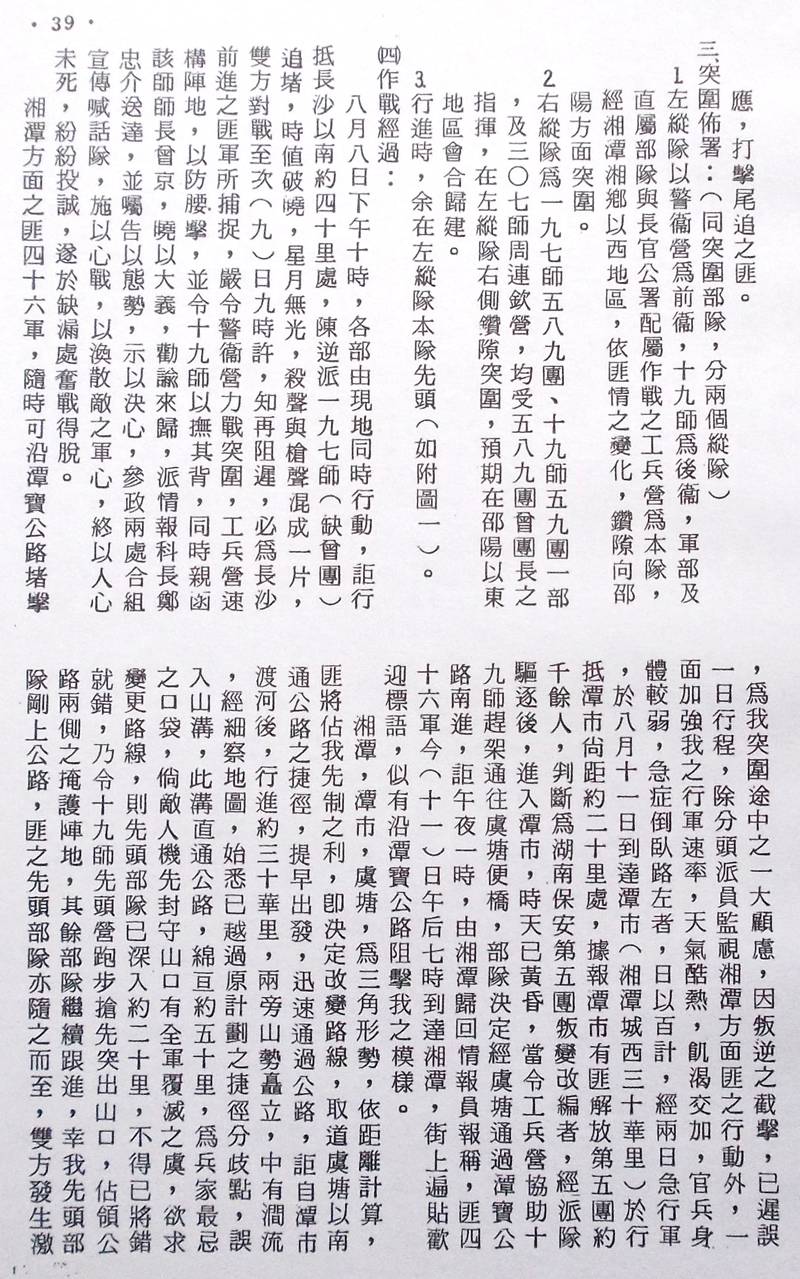 • 39 •
應，打擊尾追之匪。
三、突圍佈署：（同突圍部隊，分兩個縱隊）
1.左縱隊以警衞營爲前衞，十九師爲後衞，軍部及
直屬部隊與長官公署配屬作戰之工兵營爲本隊，
經湘潭湘鄉以西地區，依匪情之變化，鑽隙向邵
陽方面突圍。
2.右縱隊爲一九七師五八九團、十九師五九團一部
，及三〇七師周連欽營，均受五八九團曾團長之
指揮，在左縱隊右側鑽隙突圍，預期在邵陽以東
地區會合歸建。
3.行進時，余在左縱隊本隊先頭（如附圖一）。
㈣作戰經過：
八月八日下午十時，各部由現地同時行動，詎行
抵長沙以南約四十里處，陳逆派一九七師（缺曾團）
追堵，時值破曉，星月無光，殺聲與槍聲混成一片，
雙方對戰至次（九）日九時許，知再阻遲，必爲長沙
前進之匪軍所捕捉，嚴令警衞營力戰突圍，工兵營速
構陣地，以防腰擊，並令十九師以撫其背，同時親函
該師師長曾京，曉以大義，勸諭來歸，派情報科長鄭
忠介送達，並囑告以態勢，示以決心，參政兩處合組
宣傳喊話隊，施以心戰，以渙散敵之軍心，終以人心
未死，紛紛投誠，遂於缺漏處奮戰得脫。
湘潭方面之匪四十六軍，隨時可沿潭寶公路堵擊
，爲我突圍途中之一大顧慮，因叛逆之截擊，已遲誤
一日行程，除分頭派員監視湘潭方面匪之行動外，一
面加強我之行軍速率，天氣酷熱，飢渴交加，官兵身
體較弱，急症倒臥路左者，日以百計，經兩日急行軍
，於八月十一日到達潭市（湘潭城西三十華里）於行
抵潭市尙距約二十里處，據報潭市有匪解放第五團約
千餘人，判斷爲湖南保安第五團叛變改編者，經派隊
驅逐後，進入潭市，時天已黃昏，當令工兵營協助十
九師趕架通往虞塘便橋，部隊決定經虞塘通過潭寶公
路南進，詎午夜一時，由湘潭歸回情報員報稱，匪四
十六軍今（十一）日午后七時到達湘潭，街上遍貼歡
迎標語，似有沿潭寶公路阻擊我之模樣。
湘潭，潭市，虞塘，爲三角形勢，依距離計算，
匪將佔我先制之利，卽決定改變路線，取道虞塘以南
通公路之捷徑，提早出發，迅速通過公路，詎自潭市
渡河後，行進約三十華里，兩旁山勢矗立，中有澗流
，經細察地圖，始悉已越過原計劃之捷徑分歧點，誤
入山溝，此溝直通公路，綿亙約五十里，爲兵家最忌
之口袋，倘敵人機先封守山口有全軍覆滅之虞，欲求
變更路線，則先頭部隊已深入約二十里，不得已將錯
就錯，乃令十九師先頭營跑步搶先突出山口，佔領公
路兩側之掩護陣地，其餘部隊繼續跟進，幸我先頭部
隊剛上公路，匪之先頭部隊亦隨之而至，雙方發生激